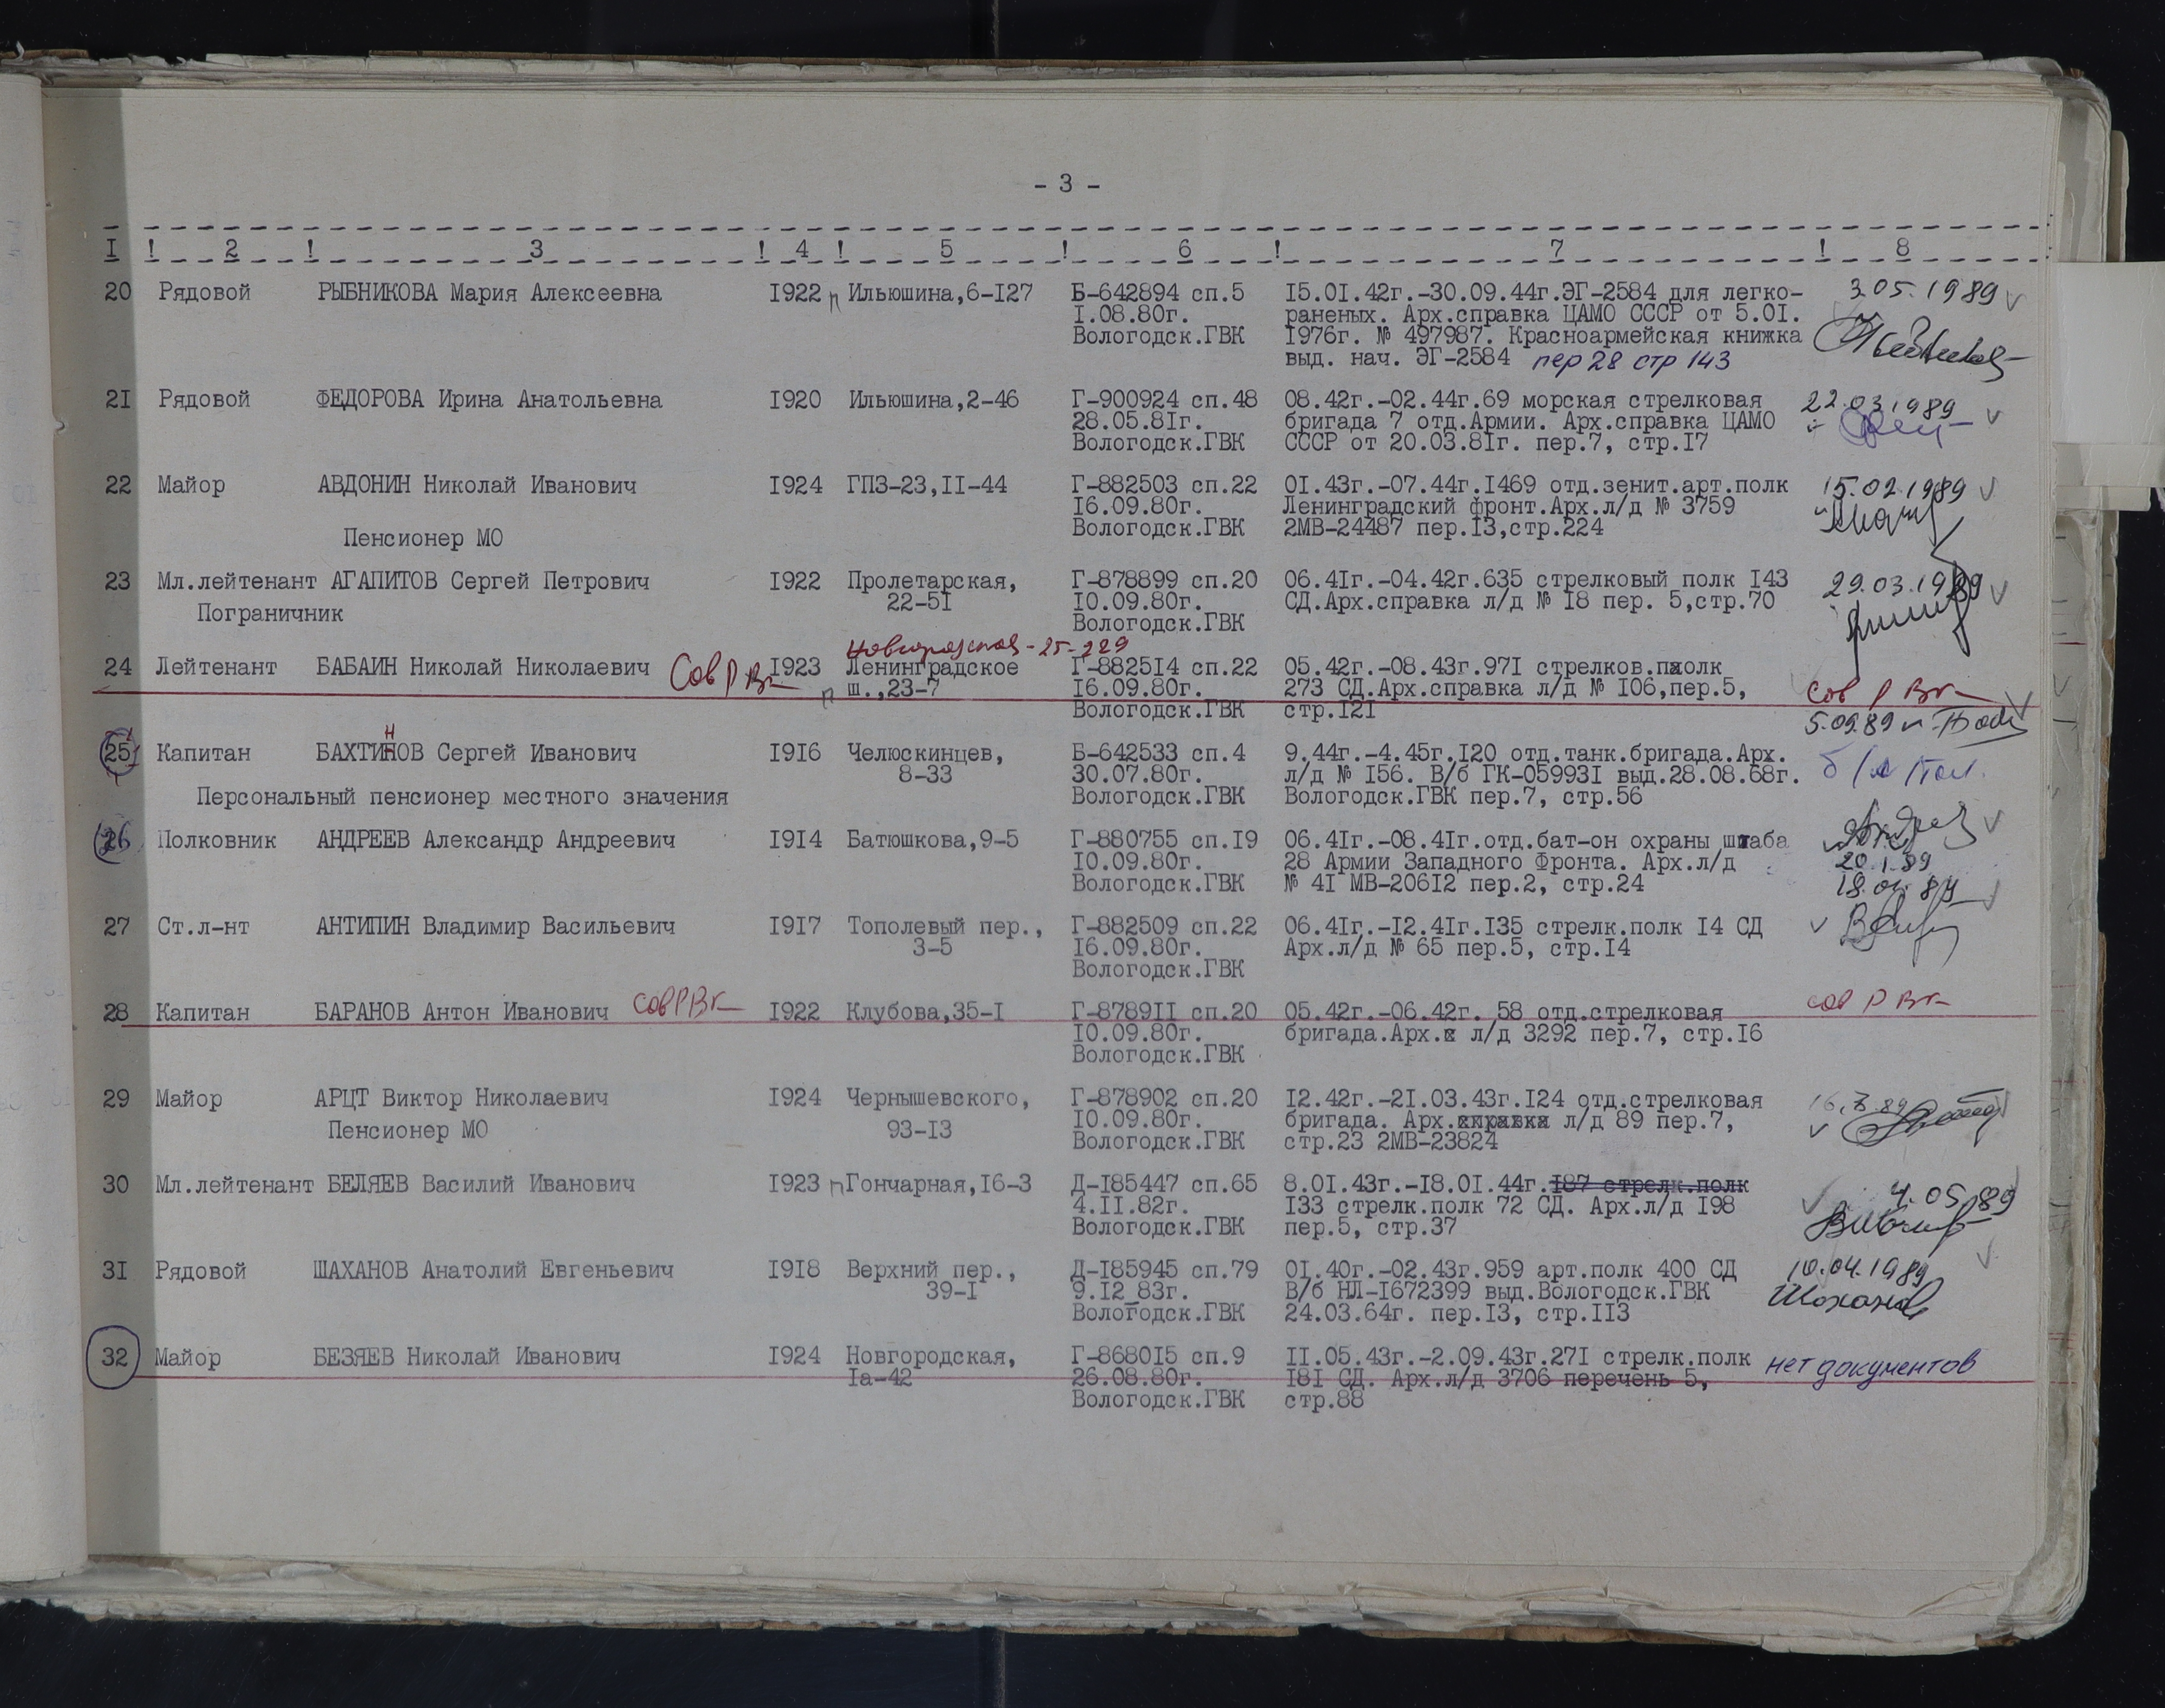 - 3 -
I ! 2 ! 3 ! 4 ! 5 ! 6 ! 7 ! 8
20 Рядовой РЫБНИКОВА Мария Алексеевна 1922 Ильюшина,6-127 Б-642894 сп.5 15.01.42г.-30.09.44г.ЭГ-2584 для легко- 3.05.1989
1.08.80г. раненых. Арх.справка ЦАМО СССР от 5.01.
Вологодск.ГВК 1976г. № 497987. Красноармейская книжка
выд. нач. ЭГ-2584 пер 28 стр 143
21 Рядовой ФЕДОРОВА Ирина Анатольевна 1920 Ильюшина,2-46 Г-900924 сп.48 08.42г.-02.44г.69 морская стрелковая 22.03.1989
28.05.81г. бригада 7 отд.Армии. Арх.справка ЦАМО
Вологодск.ГВК СССР от 20.03.81г. пер.7, стр.17
22 Майор АВДОНИН Николай Иванович 1924 ГПЗ-23,11-44 Г-882503 сп.22 01.43г.-07.44г.1469 отд.зенит.арт.полк 15.02.1989
16.09.80г. Ленинградский фронт.Арх.л/д № 3759
Пенсионер МО Вологодск.ГВК 2МВ-24487 пер.13,стр.224
23 Мл.лейтенант АГАПИТОВ Сергей Петрович 1922 Пролетарская, Г-878899 сп.20 06.41г.-04.42г.635 стрелковый полк 143 29.03.1989
22-51 10.09.80г. СД.Арх.справка л/д № 18 пер. 5,стр.70
Пограничник Вологодск.ГВК
Новгородская-25-229
24 Лейтенант БАБАИН Николай Николаевич Сов Р Вк 1923 Ленинградское Г-882514 сп.22 05.42г.-08.43г.971 стрелков.полк
ш.,23-7 16.09.80г. 273 СД.Арх.справка л/д № 106,пер.5, Сов Р Вк
Вологодск.ГВК стр.121 5.09.89
25 Капитан БАХТИНОВ Сергей Иванович 1916 Челюскинцев, Б-642533 сп.4 9.44г.-4.45г.120 отд.танк.бригада.Арх.
8-33 30.07.80г. л/д № 156. В/б ГК-059931 выд.28.08.68г.
Персональный пенсионер местного значения Вологодск.ГВК Вологодск.ГВК пер.7, стр.56
26 Полковник АНДРЕЕВ Александр Андреевич 1914 Батюшкова,9-5 Г-880755 сп.19 06.41г.-08.41г.отд.бат-он охраны штаба
10.09.80г. 28 Армии Западного Фронта. Арх.л/д 20.1.89
Вологодск.ГВК № 41 МВ-20612 пер.2, стр.24
27 Ст.л-нт АНТИПИН Владимир Васильевич 1917 Тополевый пер., Г-882509 сп.22 06.41г.-12.41г.135 стрелк.полк 14 СД
3-5 16.09.80г. Арх.л/д № 65 пер.5, стр.14
Вологодск.ГВК
28 Капитан БАРАНОВ Антон Иванович Сов Р Вк 1922 Клубова,35-1 Г-878911 сп.20 05.42г.-06.42г. 58 отд.стрелковая Сов Р Вк
10.09.80г. бригада.Арх. л/д 3292 пер.7, стр.16
Вологодск.ГВК
29 Майор АРЦТ Виктор Николаевич 1924 Чернышевского, Г-878902 сп.20 12.42г.-21.03.43г.124 отд.стрелковая
Пенсионер МО 93-13 10.09.80г. бригада. Арх.справка л/д 89 пер.7,
Вологодск.ГВК стр.23 2МВ-23824
30 Мл.лейтенант БЕЛЯЕВ Василий Иванович 1923 Гончарная,16-3 Д-185447 сп.65 8.01.43г.-18.01.44г.187 стрелк.полк 4.05.89
4.11.82г. 133 стрелк.полк 72 СД. Арх.л/д 198
Вологодск.ГВК пер.5, стр.37
31 Рядовой ШАХАНОВ Анатолий Евгеньевич 1918 Верхний пер., Д-185945 сп.79 01.40г.-02.43г.959 арт.полк 400 СД 10.04.1989
39-1 9.12 83г. В/б НЛ-1672399 выд.Вологодск.ГВК Шаханов
Вологодск.ГВК 24.03.64г. пер.13, стр.113
32 Майор БЕЗЯЕВ Николай Иванович 1924 Новгородская, Г-868015 сп.9 11.05.43г.-2.09.43г.271 стрелк.полк нет документов
1а-42 26.08.80г. 181 СД. Арх.л/д 3706 перечень 5,
Вологодск.ГВК стр.88